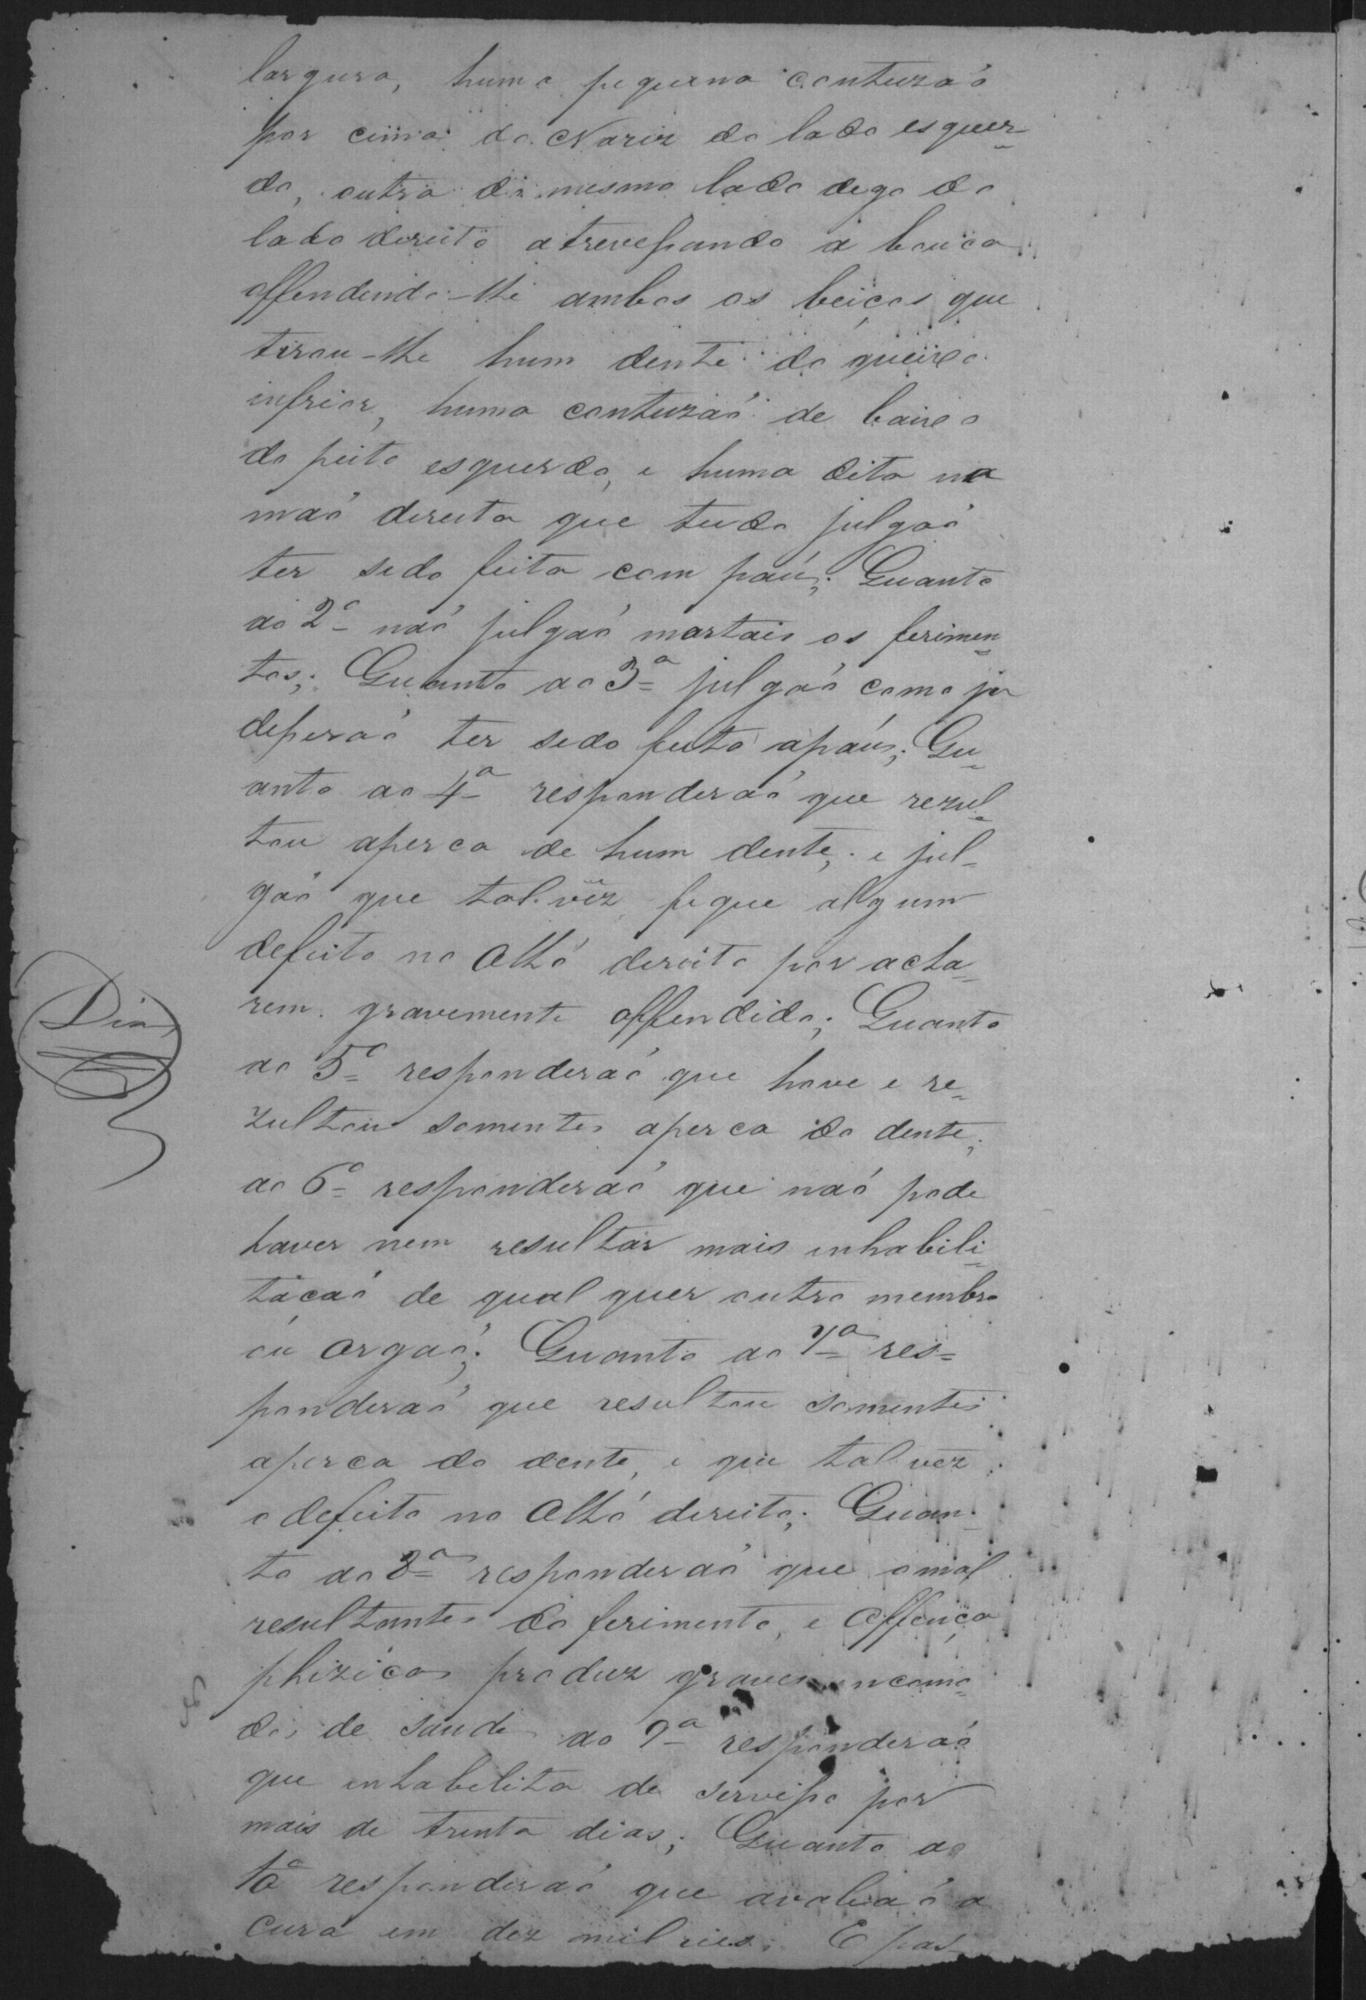 largura, huma piquena contuzaõ
por cima do Nariz do lado esquer-
do, outra do mesmo lado digo do
lado direito atravessando a bouca
offendendo-lhe ambos os beiços que
tirou-lhe hum dente do queixo
infrior, huma contuzaõ de baixo
do peito esquerdo, e huma dita na
maõ direita que tudo julgaõ
ter sido feita com paú; Quanto
ao 2º naõ julgaõ mortais os ferimen-
tos; Quanto ao 3º julgaõ como ja
desseraõ ter sido feito apaús; Qu-
anto ao 4º responderaõ que rezul-
tou aperca de hum dente; e jul-
gaõ que tal vez fique algum
defeito no Olhó direito por acha-
rem gravemente offendido; Quanto
ao 5º responderaõ que have e re-
zultou somente aperca do dente;
ao 6º responderaõ que naõ pode
haver nem resultar mais inhabili-
tacaõ de qual quer outro membro
ou orgaõ; Quanto ao 7º res-
ponderaõ que resultou somente
aperca do dente, e que tal vez
o defeito no Olhó direito; Quan-
to ao 8º responderaõ que o mal
resultante do ferimento, e offença
phizica produz graves encomo-
dos de saude ao 9º responderaõ
que inhabilita de servisso por
mais de trinta dias; Quanto ao
10º responderaõ que avaliaõ a
cura em dez mil reis. E pas
Dias